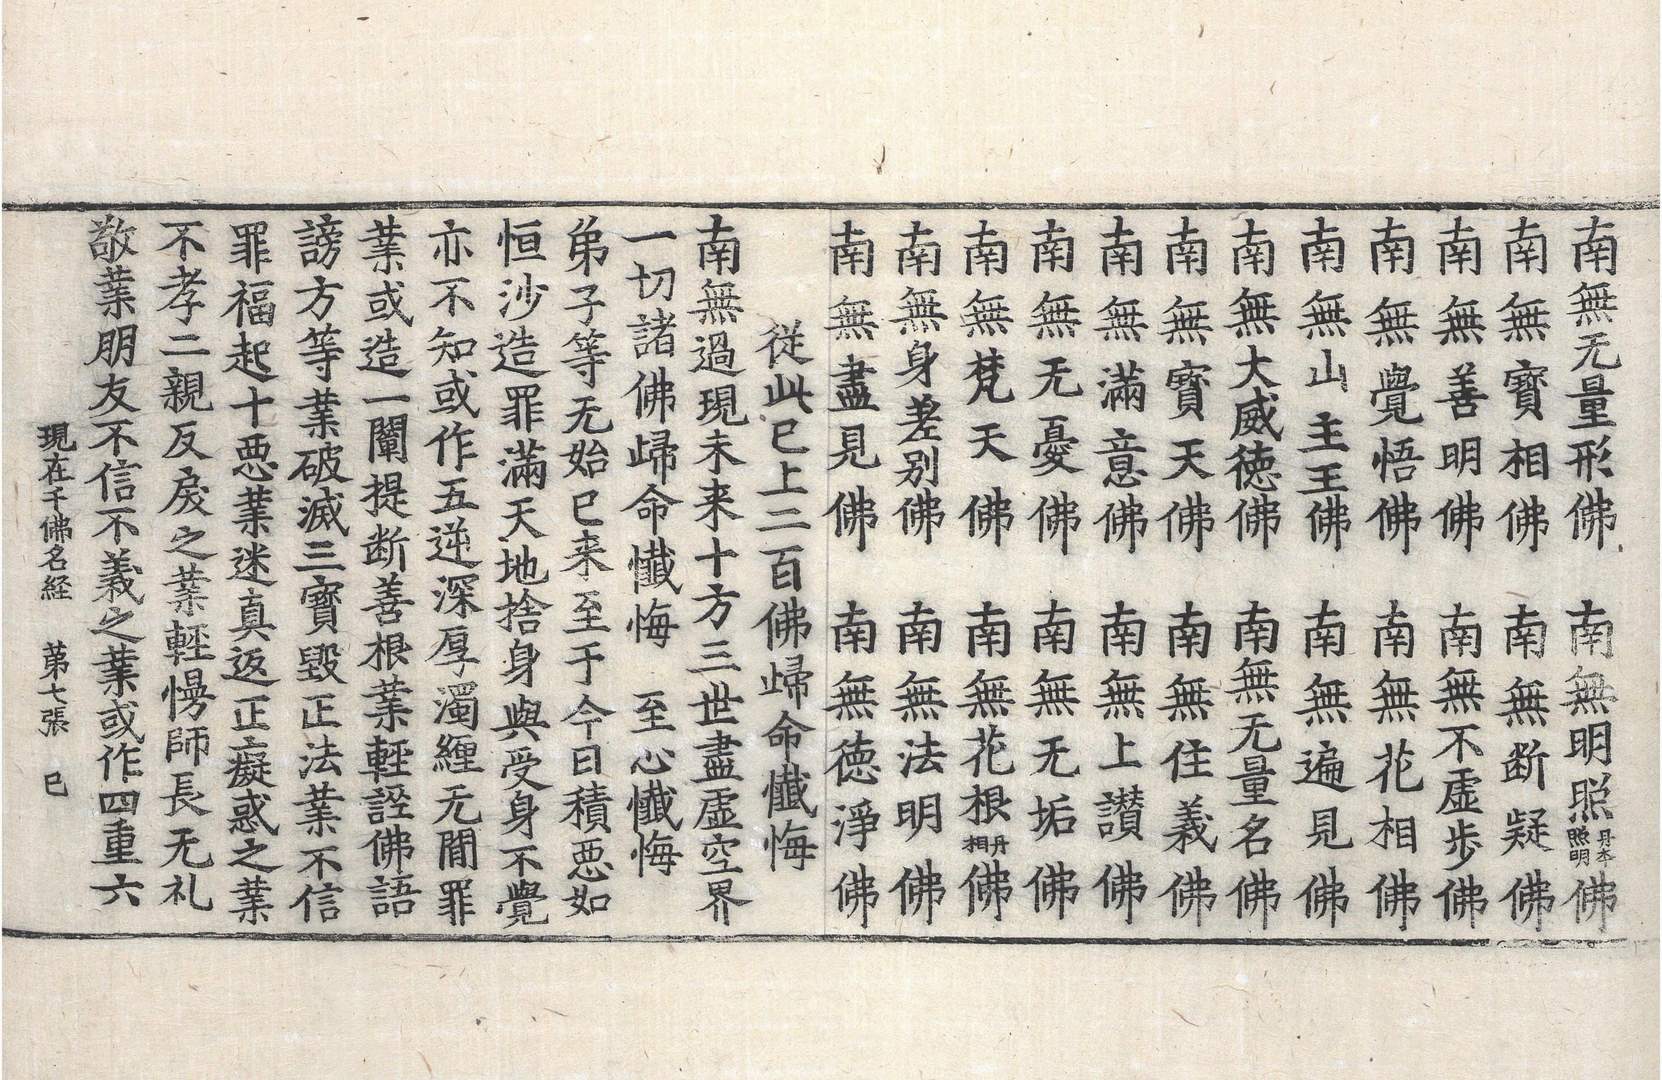 南無无量形佛　南無明照丹本照明佛
南無寳相佛　南無断疑佛
南無善明佛　南無不虚歩佛
南無覺悟佛　南無花相佛
南無山主王佛　南無遍見佛
南無大威徳佛　南無无量名佛
南無寳天佛　南無住義佛
南無滿意佛　南無上讃佛
南無无憂佛　南無无垢佛
南無梵天佛　南無花根丹相佛
南無身差别佛　南無法明佛
南無盡見佛　南無徳淨佛
從此已上二百佛歸命懺悔
南無過現未来十方三世盡虚空界
一切諸佛歸命懺悔　至心懺悔
弟子等无始已来至于今日積惡如
恒沙造罪滿天地捨身與受身不覺
亦不知或作五逆深厚濁纏无間罪
業或造一闡提断善根業輕誣佛語
謗方等業破滅三寳毀正法業不信
罪福起十惡業迷真返正癡惑之業
不孝二親反戾之業輕慢師長无礼
敬業朋友不信不義之業或作四重六
現在千佛名経　第七張　已